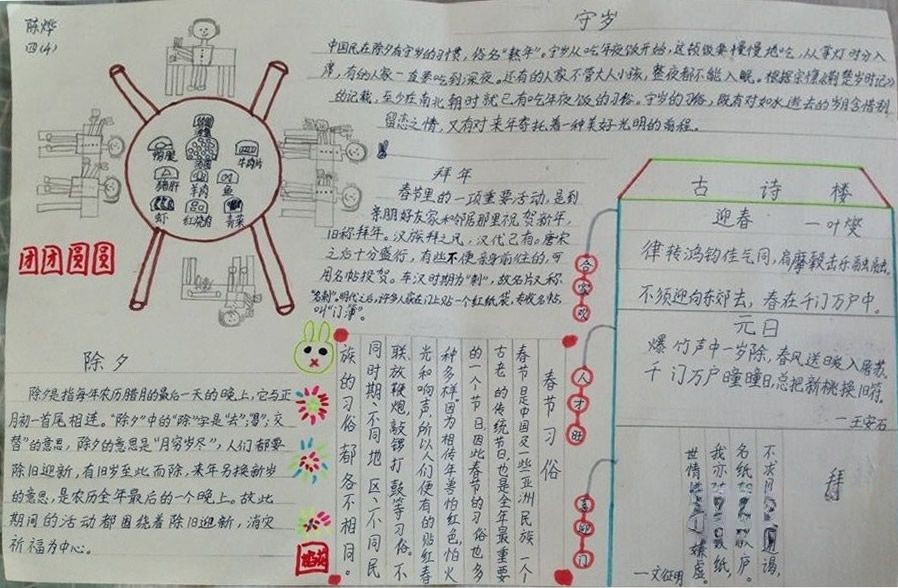 陈烨
四(4)
鸭腿
汤圆
牛肉片
猪肝
羊肉
鱼
虾
红烧肉
青菜
团团圆圆
守岁
中国民在除夕有守岁的习惯，俗名“熬年”。守岁从吃年夜饭开始，这顿饭要慢慢地吃，从掌灯时分入
席，有的人家一直要吃到深夜。还有的人家不管大人小孩，整夜都不能入眠。根据宗懔《荆楚岁时记》
的记载，至少在南北朝时就已有吃年夜饭的习俗。守岁的习俗，既有对如水逝去的岁月含惜别
留恋之情，又有对来年寄托着一种美好光明的前程。
拜年
春节里的一项重要活动，是到
亲朋好友家和邻居那里祝贺新年，
旧称拜年。汉族拜之风，汉代已有。唐宋
之后十分盛行，有些不便亲身前往的，可
用名帖投贺。东汉时期为“刺”，故名片又称
“名刺”。明代之后，许多人家在门上贴一个红纸袋，专收名帖，
叫“门簿”。
古诗楼
迎春 一叶燮
律转鸿钧佳气同，肩摩毂击乐融融。
不须迎向东郊去，春在千门万户中。
元日
爆竹声中一岁除，春风送暖入屠苏。
千门万户曈曈日，总把新桃换旧符。
一王安石
合家欢
人才旺
喜临门
除夕
除夕是指每年农历腊月的最后一天的晚上，它与正
月初一首尾相连。“除夕”中的“除”字是“去；易；交
替”的意思，除夕的意思是“月穷岁尽”，人们都要
除旧迎新，有旧岁至此而除，来年另换新岁
的意思，是农历全年最后的一个晚上。故此
期间的活动都围绕着除旧迎新，消灾
祈福为中心。
春节习俗
春节日是中国及一些亚洲民族一个
古老的传统节日，也是全年最重要
的一个节日，因此春节的习俗也多
种多样。因为相传年兽怕红色，怕火
光和响声，所以人们便有的贴红春
联、放鞭炮、敲锣打鼓等习俗。不
同时期、不同地区、不同民
族的习俗都各不相同。
拜
不求
谒，
名纸
庐。
我亦
纸，
世情嫌
虚
一文征明